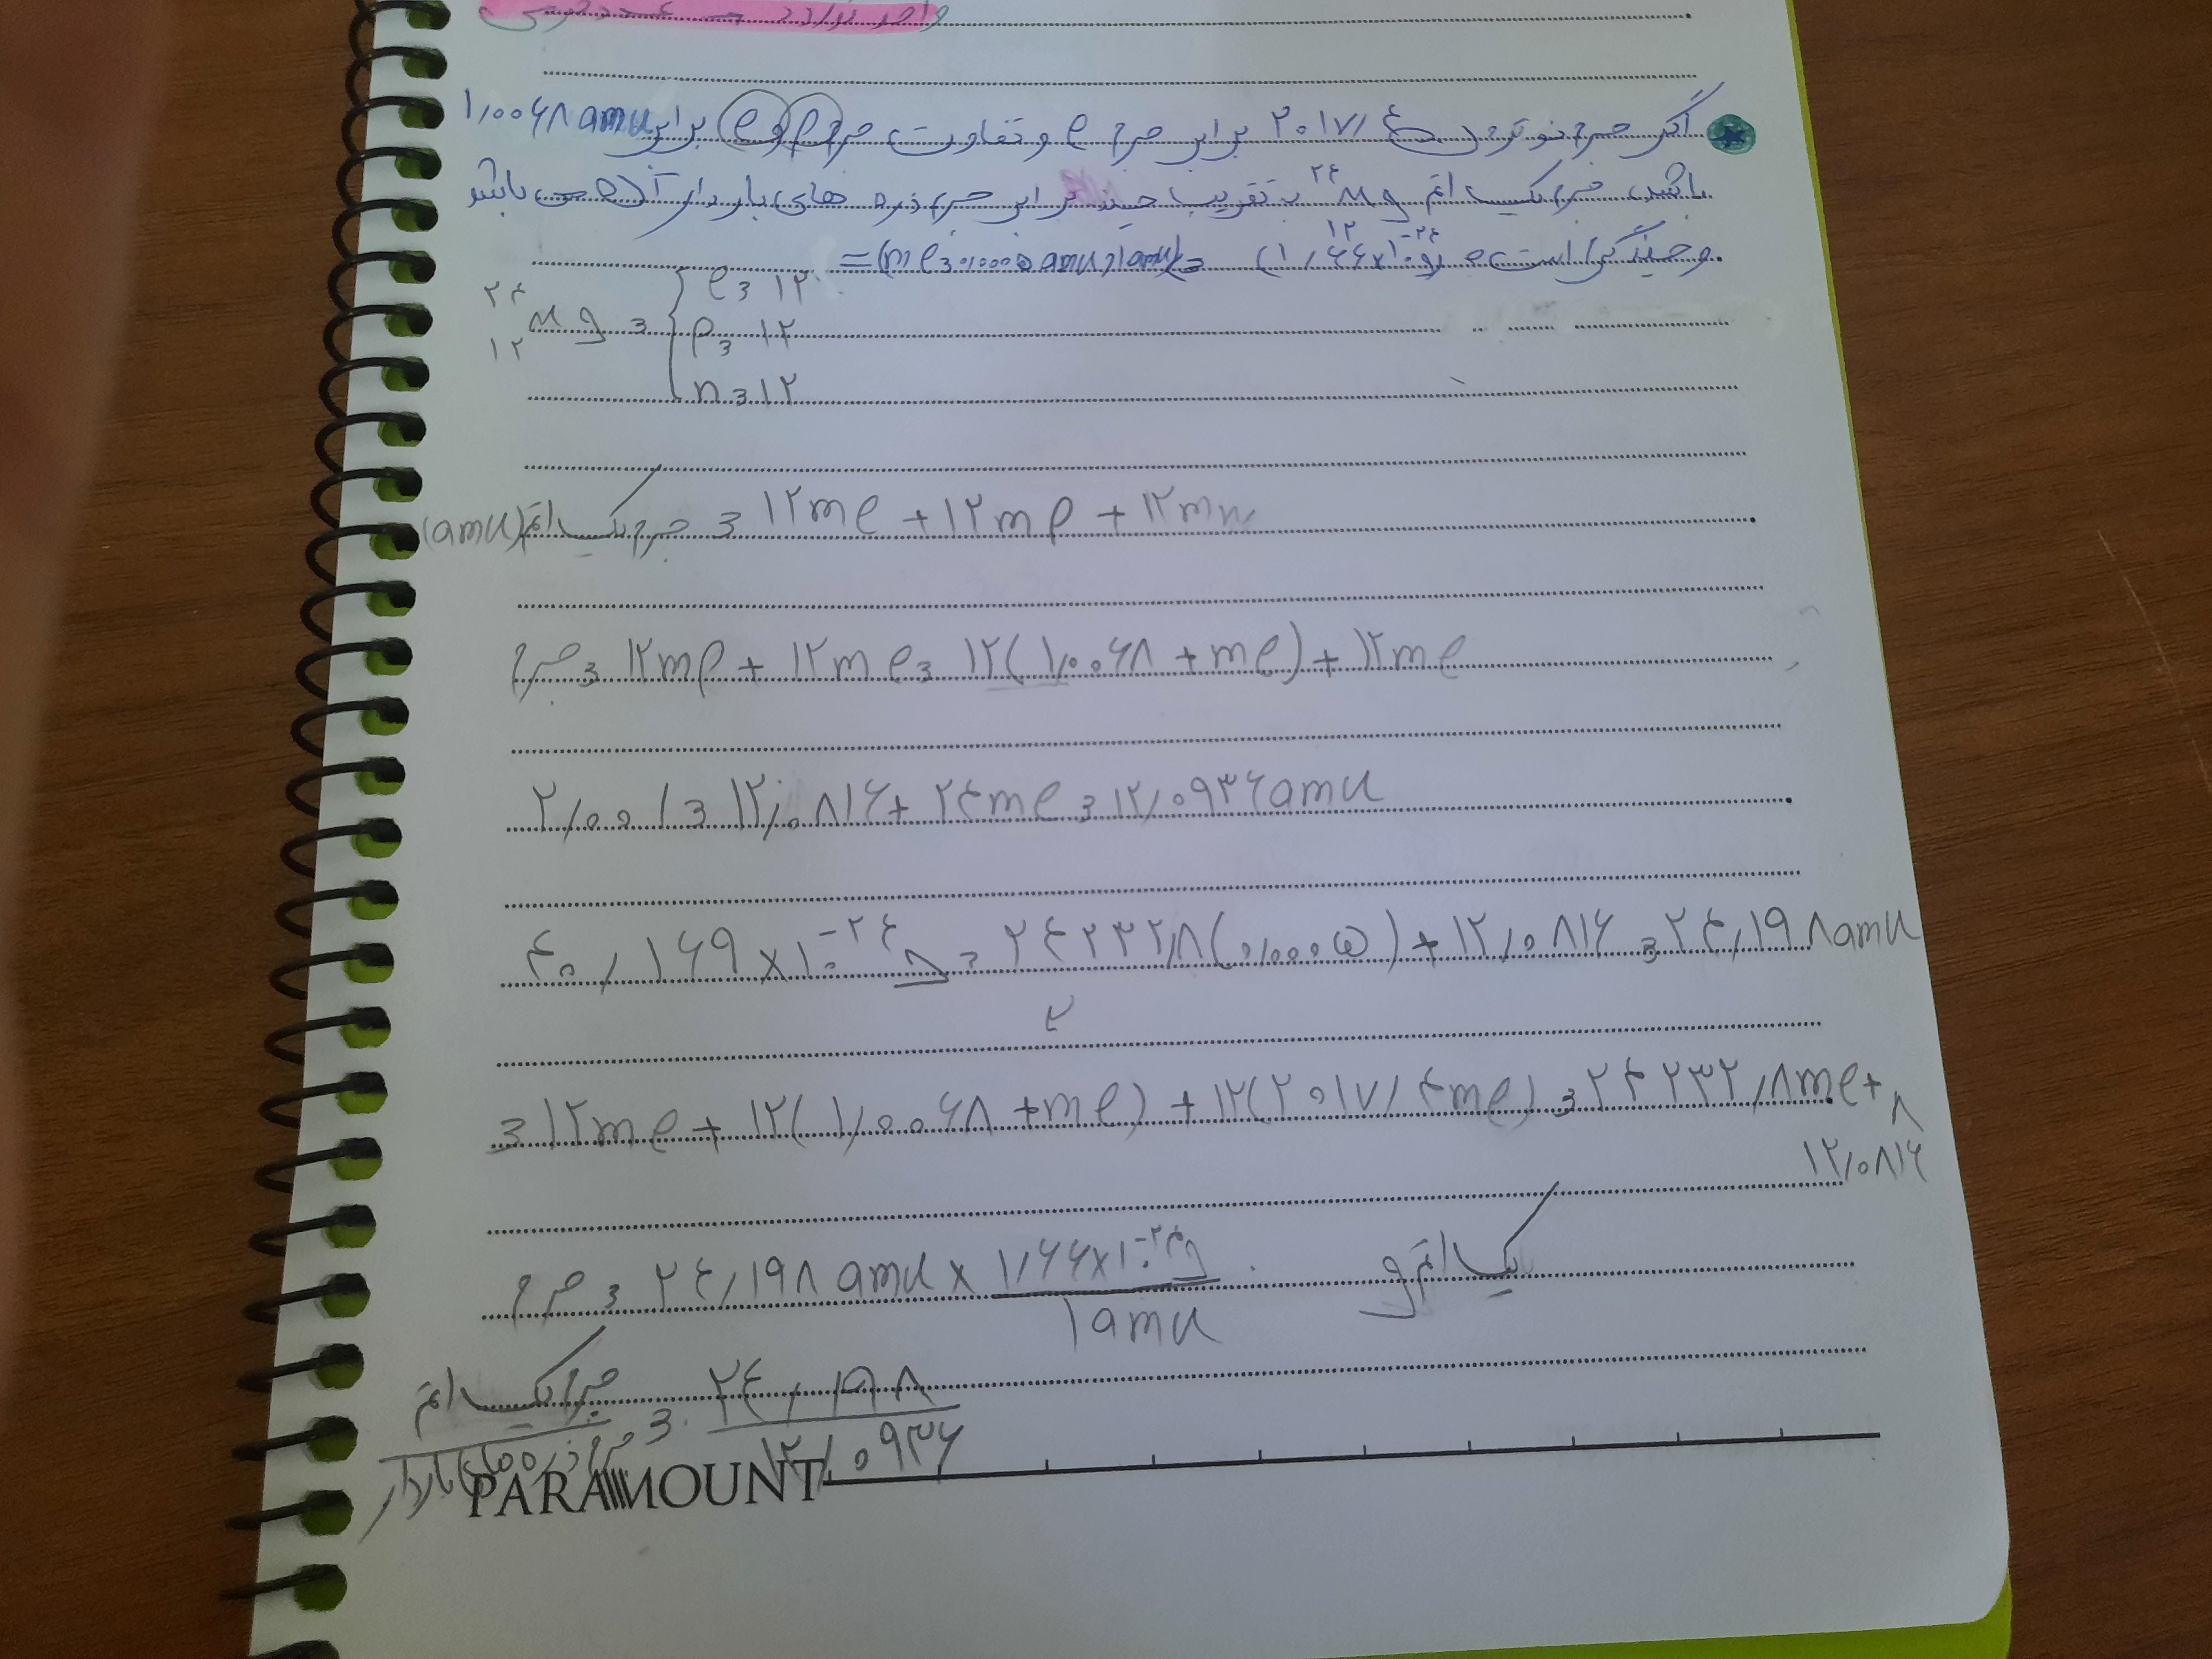 اگر جرم نوترون ۲۰۱۷/۴ برابر جرم e و تفاوت جرم p و e برابر ۱/۰۰۶۸ amu
باشد، جرم یک اتم ²⁴Mg به تقریب چند برابر جرم ذره های باردار آن می باشد
و چند گرم است؟ (me = ۰/۰۰۰۵ amu, ۱amu = ۱/۶۶×۱۰⁻²⁴g) =
۲۴ ۱۲ Mg = { e = ۱۲
p = ۱۲
n = ۱۲
جرم یک اتم (amu) = ۱۲me + ۱۲mp + ۱۲mn
جرم = ۱۲mp + ۱۲me = ۱۲(۱/۰۰۶۸ + me) + ۱۲me
۲/۰۰۱ = ۱۲/۰۸۱۶ + ۲۴me = ۱۲/۰۹۳۶amu
۴۰/۱۶۹ × ۱۰⁻²⁴g = ۲۴۲۳۲/۸(۰/۰۰۰۵) + ۱۲/۰۸۱۶ = ۲۴/۱۹۸amu
= ۱۲me + ۱۲(۱/۰۰۶۸ + me) + ۱۲(۲۰۱۷/۴me) = ۲۴۲۳۲/۸me +
۱۲/۰۸۱۶
جرم = ۲۴/۱۹۸ amu × ۱/۶۶×۱۰⁻²⁴g / ۱amu یک اتم g
جرم یک اتم / جرم ذره های باردار = ۲۴/۱۹۸ / ۱۲/۰۹۳۶
PARAMOUNT